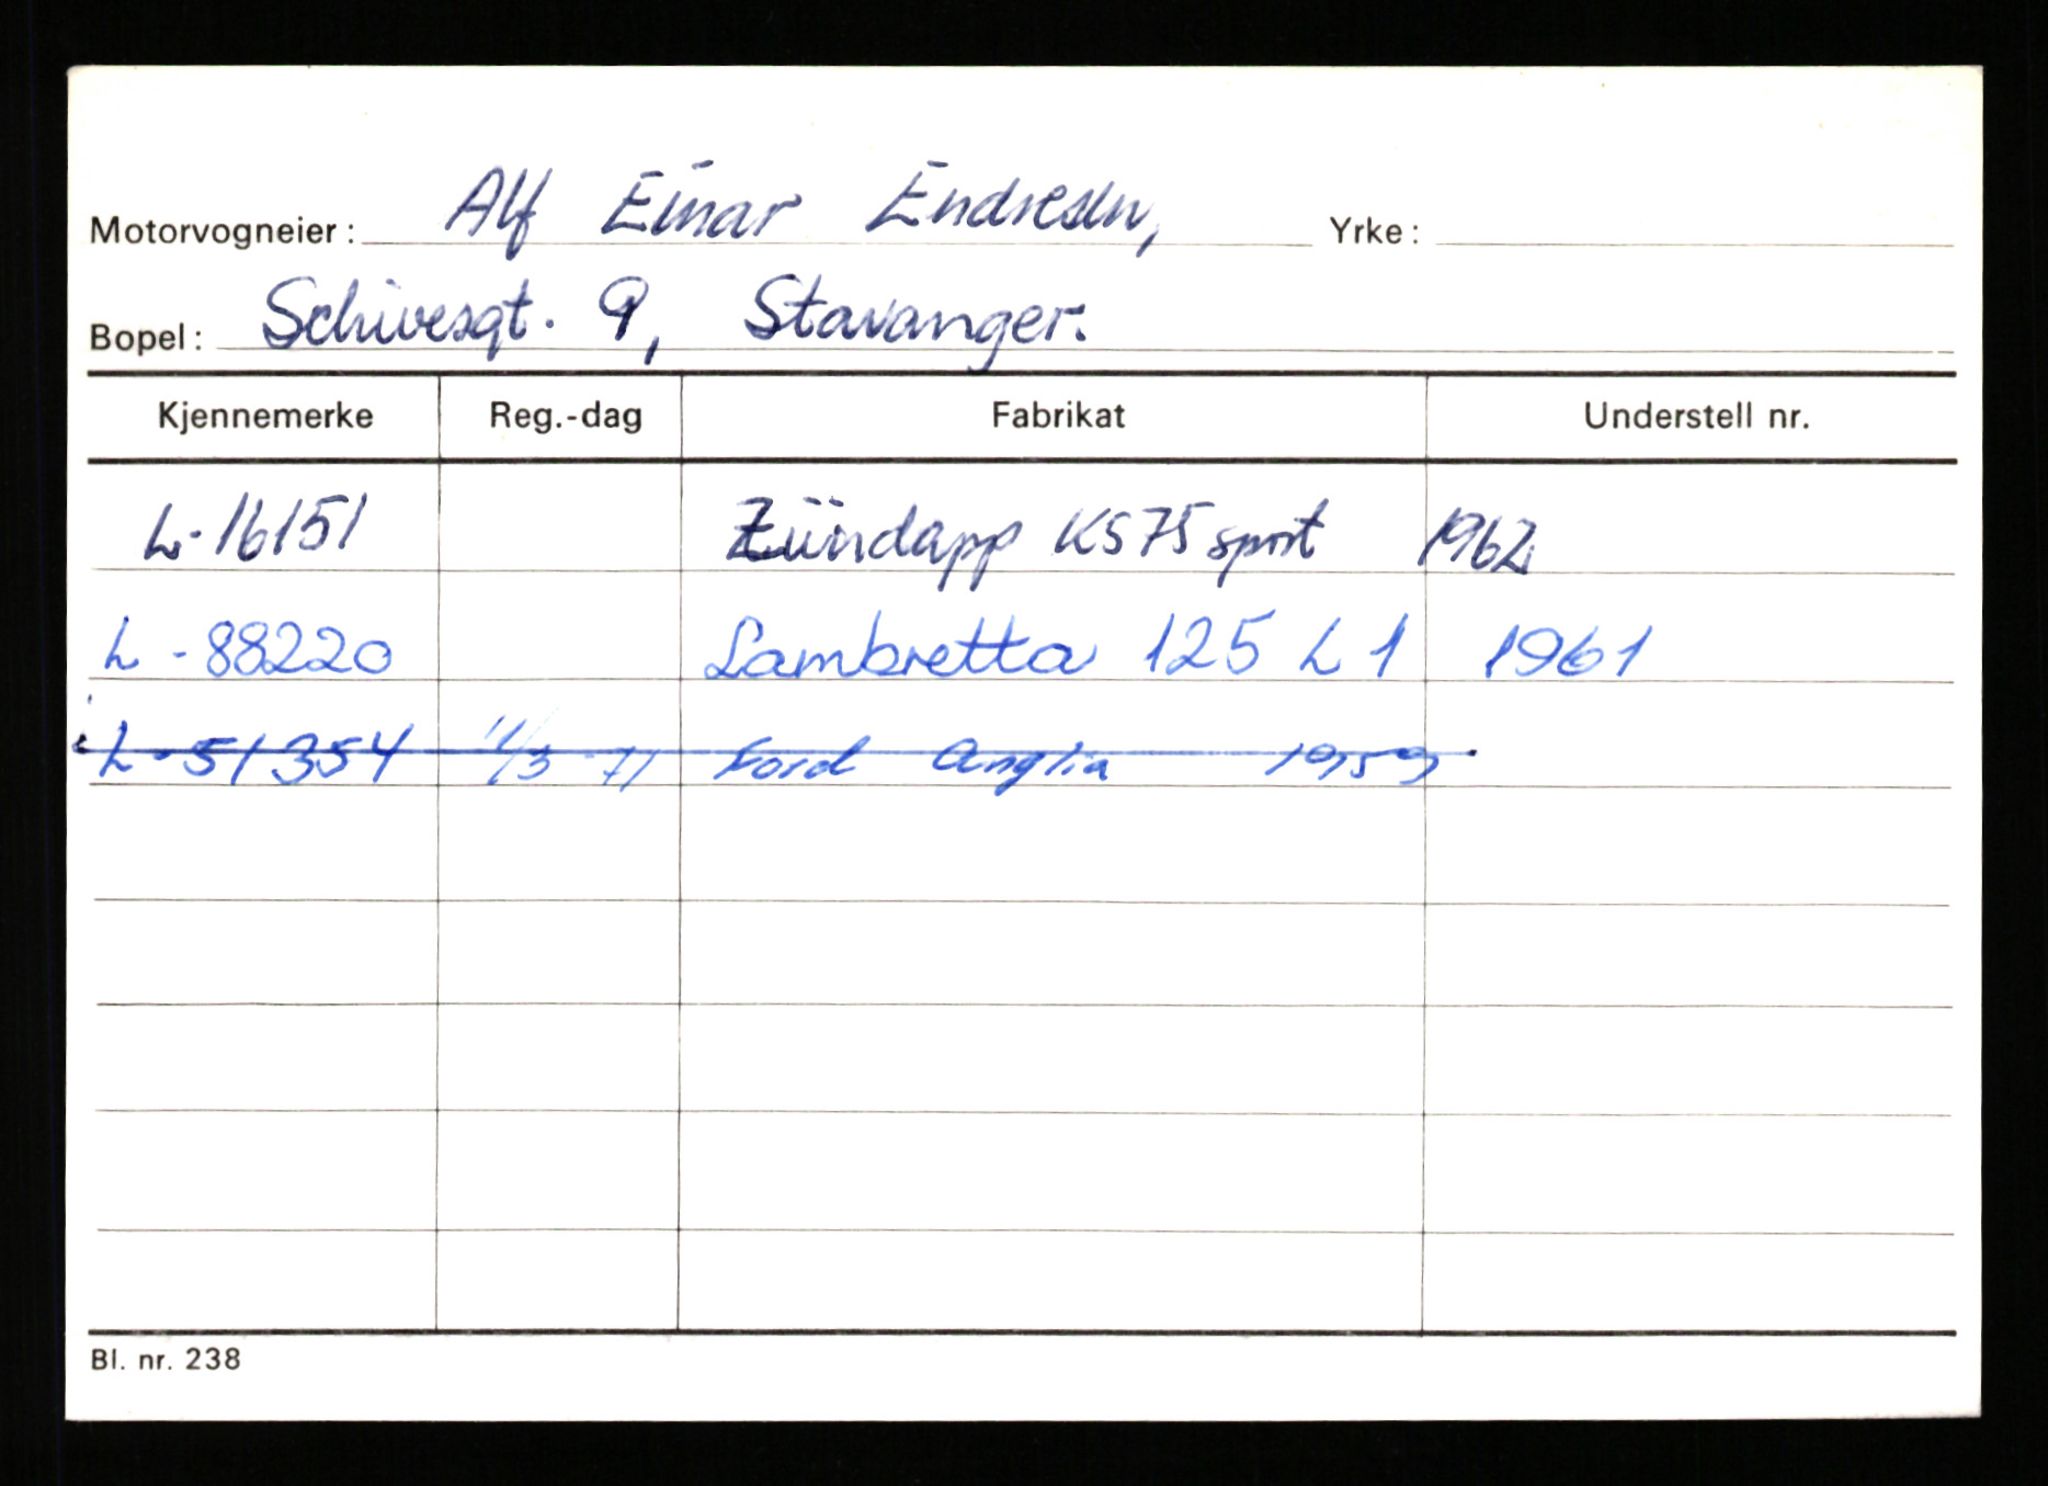 Motorvogneier: Alf Einar Endresen, Yrke:
Bopel: Schivesgt. 9, Stavanger.
Kjennemerke Reg.-dag Fabrikat Understell nr.
L-16151 Zündapp KS75 sport 1962
L-88220 Lambretta 125 L 1 1961
L-51354 11/3-71 Ford Anglia 1959
Bl. nr. 238